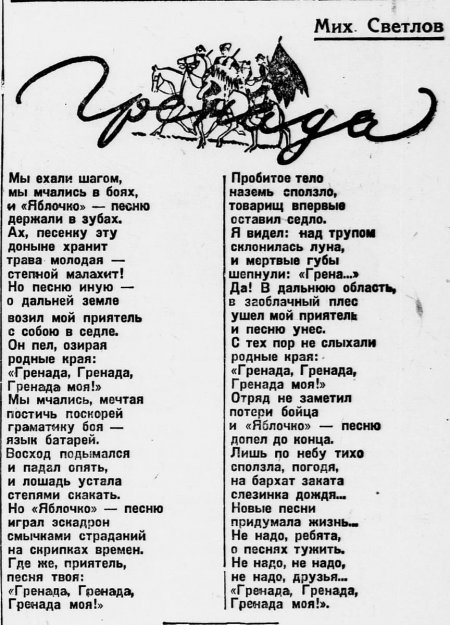 Мих. Светлов
Гренада
Мы ехали шагом,
мы мчались в боях,
и «Яблочко» — песню
держали в зубах.
Ах, песенку эту
доныне хранит
трава молодая —
степной малахит!
Но песню иную —
о дальней земле
возил мой приятель
с собою в седле.
Он пел, озирая
родные края:
«Гренада, Гренада,
Гренада моя!»
Мы мчались, мечтая
постичь поскорей
граматику боя —
язык батарей.
Восход подымался
и падал опять,
и лошадь устала
степями скакать.
Но «Яблочко» — песню
играл эскадрон
смычками страданий
на скрипках времен.
Где же, приятель,
песня твоя:
«Гренада, Гренада,
Гренада моя!»
Пробитое тело
наземь сползло,
товарищ впервые
оставил седло.
Я видел: над трупом
склонилась луна,
и мертвые губы
шепнули: «Грена...»
Да! В дальнюю область,
в заоблачный плес
ушел мой приятель
и песню унес.
С тех пор не слыхали
родные края:
«Гренада, Гренада,
Гренада моя!»
Отряд не заметил
потери бойца
и «Яблочко» — песню
допел до конца.
Лишь по небу тихо
сползла, погодя,
на бархат заката
слезинка дождя...
Новые песни
придумала жизнь...
Не надо, ребята,
о песнях тужить.
Не надо, не надо,
не надо, друзья...
«Гренада, Гренада,
Гренада моя!».